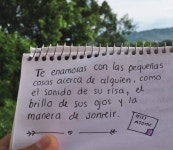 Te enamoras con las pequeñas
cosas acerca de alguien, como
el sonido de su risa, el
brillo de sus ojos y la
manera de sonreír.